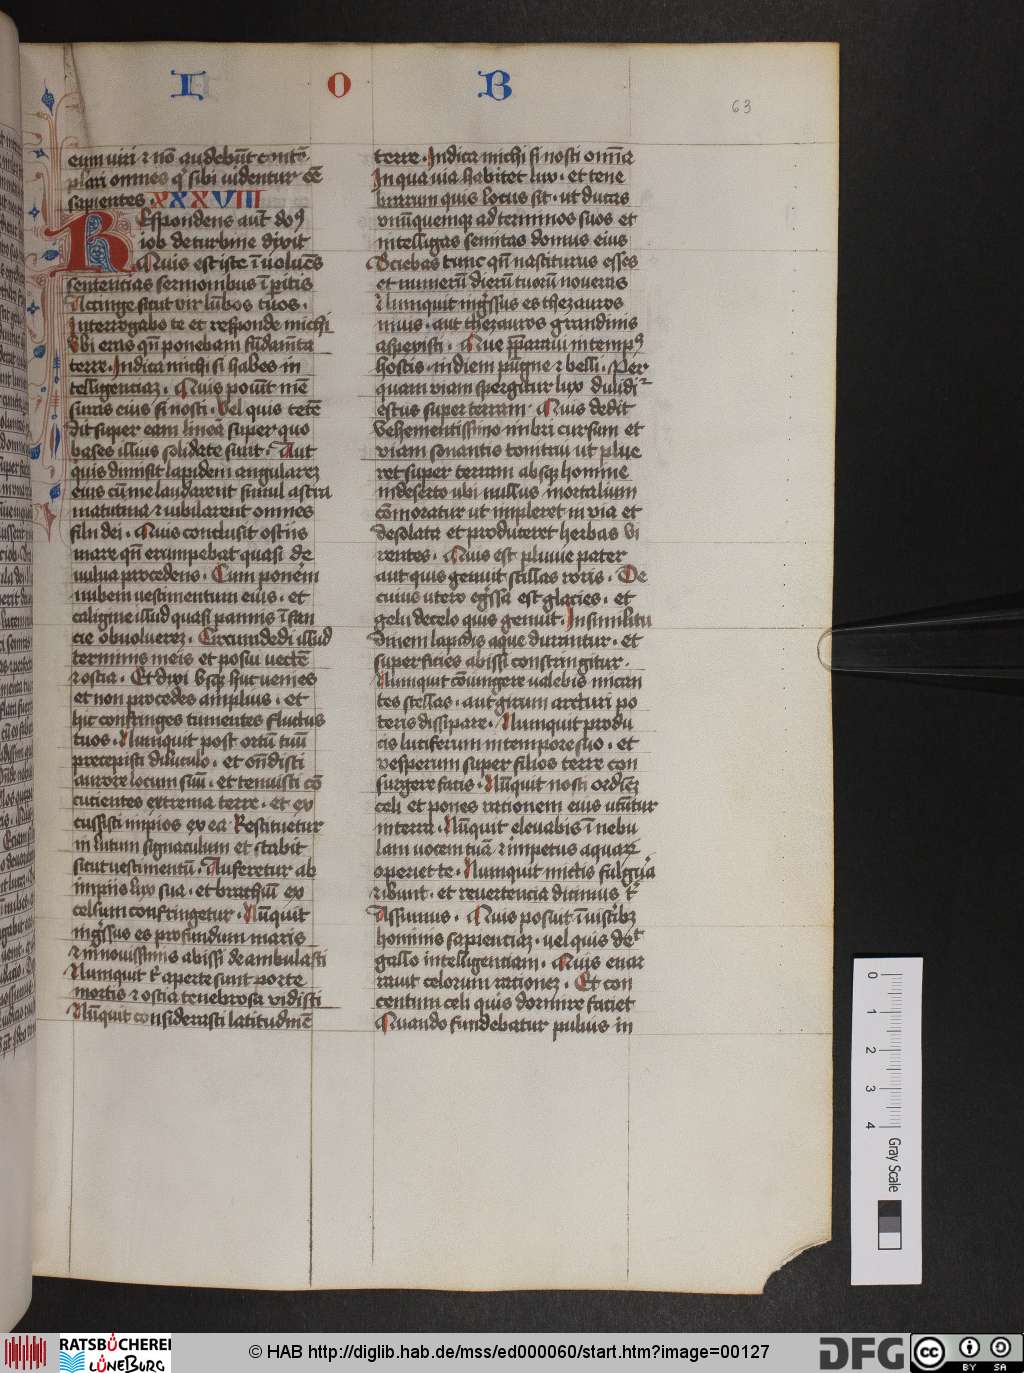 I O B
63
eum viri ⁊ nō audebūt contē
plari omnes qͥ sibi uidentur eē
sapientes . XXXVIII
REspondens aut̄ dn̄s
iob de turbine dixit
Quis est iste īuoluēs
sentencias sermonibus īpitis
Accinge sicut vir lūbos tuos .
Interrogabo te et responde michi
Vbi eras qn̄ ponebam fūdam̄ta
terre . Indica michi si habes in
telligenciaꝫ . Quis posuit mē
suras eius si nosti . Vel quis tetē
dit super eam lineā super quo
bases illius solidate sunt . Aut
quis dimisit lapidem angulareꝫ
eius cū me laudarent simul astra
matutina ⁊ iubilarent omnes
filii dei . Quis conclusit ostiis
mare qn̄ erumpebat quasi de
uulua procedens . Cum ponerem
nubem uestimentum eius . et
caligine illud quasi pannis īfan
cie obuoluereꝫ . Circumdedi illud
terminis meis et posui uectē
⁊ ostia . Et dixi vsqꝫ huc uenies
et non procedes amplius . et
hic confringes tumentes fluctus
tuos . Numquit post ortū tuū
precepisti diluculo . et on̄disti
aurore locum suū . et tenuisti cō
cutientes extrema terre . et ex
cussisti impios ex ea Restituetur
in lutum signaculum et stabit
sicut uestimentū . Auferetur ab
impiis lux sua . et brachiū ex
celsum confringetur . Nūquit
ingressus es profundum maris
⁊ in nouissimis abissi deambulasti
Numquit tͥ aperte sunt porte
mortis ⁊ ostia tenebrosa vidisti
Nūquit considerasti latitudinē
terre . Indica michi si nosti omnia
In qua via habitet lux . et tene
brarum quis locus sit . ut ducas
vnūquemqꝫ ad terminos suos et
intelligas semitas domus eius
Sciebas tunc qn̄ nasciturus esses
et numerū dierū tuorū noueras
Numquit ingressus es thezauros
niuis . aut thezauros grandinis
aspexisti . Que p̄paraui in temp⁹
hostis . in diem pugne ⁊ belli . Per
quam viam spergitur lux diuidi
estus super terram . Quis dedit
vehementissimo imbri cursum et
viam sonantis tonitrui ut plue
ret super terram absqꝫ homine
in deserto ubi nullus mortalium
cōmoratur ut impleret inuia et
desolata et produceret herbas vi
rentes . Quis est pluuie pater
aut quis genuit stillas roris . De
cuius utero egressa est glacies . et
gelu de celo quis genuit . In similitu
dinem lapidis aque durantur . et
superficies abissi constringitur .
Numquit cōiungere ualebis mican
tes stellas . aut girum arcturi po
teris dissipare . Numquit produ
cis luciferum in tempore suo . et
vesperum super filios terre con
surgere facis . Nūquit nosti ordinē
celi et pones rationem eius
in terra . Nūquit eleuabis ī nebu
lam uocem tuā ⁊ impetus aquarꝝ
operiet te . Numquit mictis fulgura
⁊ ibunt . et reuertencia dicunt tͥ
Assumus . Quis posuit ī visceribꝫ
hominis sapienciaꝫ . uel quis det
gallo intelligentiam . Quis enar
rauit celorum rationeꝫ . Et con
centum celi quis dormire faciet
Quando fundebatur puluis in
0 1 2 3 4
Gray Scale
RATSBÜCHEREI
LÜNEBURG
© HAB http://diglib.hab.de/mss/ed000060/start.htm?image=00127
DFG
cc BY SA